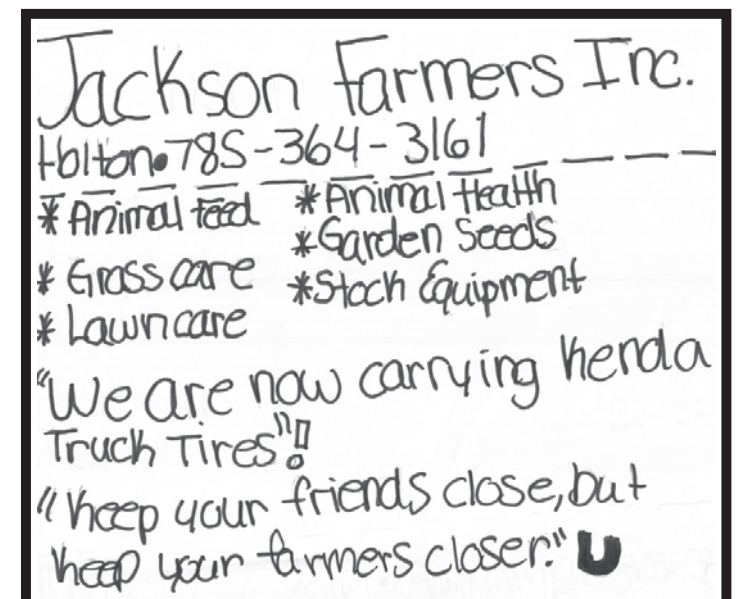 Jackson Farmers Inc.
Holton•785-364-3161
* Animal Feed * Animal Health
* Garden Seeds
* Grass care * Stock Equipment
* Lawn care
"We are now carrying Kenda
Truck Tires"!
"Keep your friends close, but
keep your farmers closer."